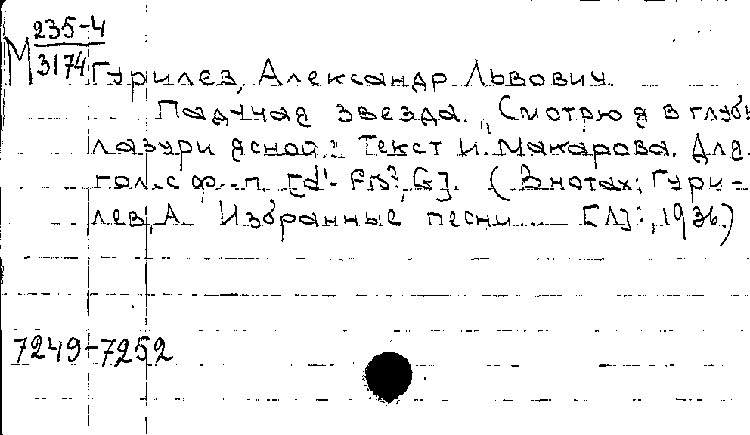 М 235-4
3174
Гурилев, Александр Львович
Падучая звезда. "Смотрю я в глубь
лазури ясной": Текст И. Макарова. Для
гол. с ф.-п. [d¹- G]. (В нотах: Гури-
лев, А. Избранные песни... [Л]:, 1936.)
7249-7252